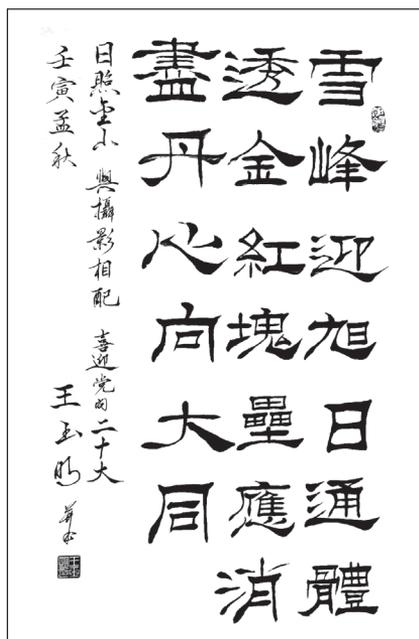 雪峰迎旭日通體
透金紅塊壘應消
盡丹心向大同
日照金山 與攝影相配 喜迎党的二十大
壬寅孟秋 王玉明 并书